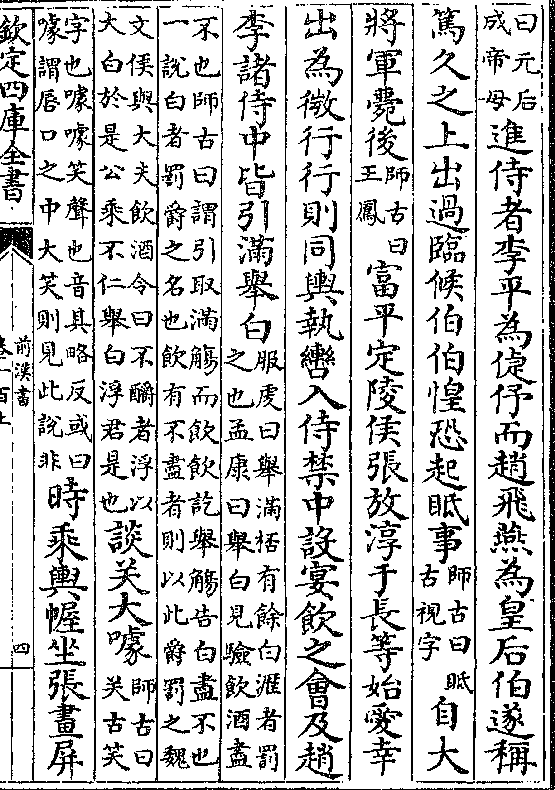 曰元后
成帝母進侍者李平為倢伃而趙飛燕為皇后伯遂稱
篤久之上出過臨候伯伯惶恐起眡事師古曰眡
古視字自大
將軍薨後師古曰
王鳳富平定陵侯張放淳于長等始愛幸
出為微行行則同輿執轡入侍禁中設宴飲之會及趙
李諸侍中皆引滿舉白服虔曰舉滿桮有餘白瀝者罰
之也孟康曰舉白見驗飲酒盡
不也師古曰謂引取滿觴而飲飲訖舉觴告白盡不也
一說白者罰爵之名也飲有不盡者則以此爵罰之魏
文侯與大夫飲酒令曰不釂者浮以
大白於是公乘不仁舉白浮君是也談关大噱師古曰
关古笑
字也噱噱笑聲也音其略反或曰
噱謂唇口之中大笑則見此說非時乘輿幄坐張畫屏
欽定四庫全書
前漢書
卷一百上
四